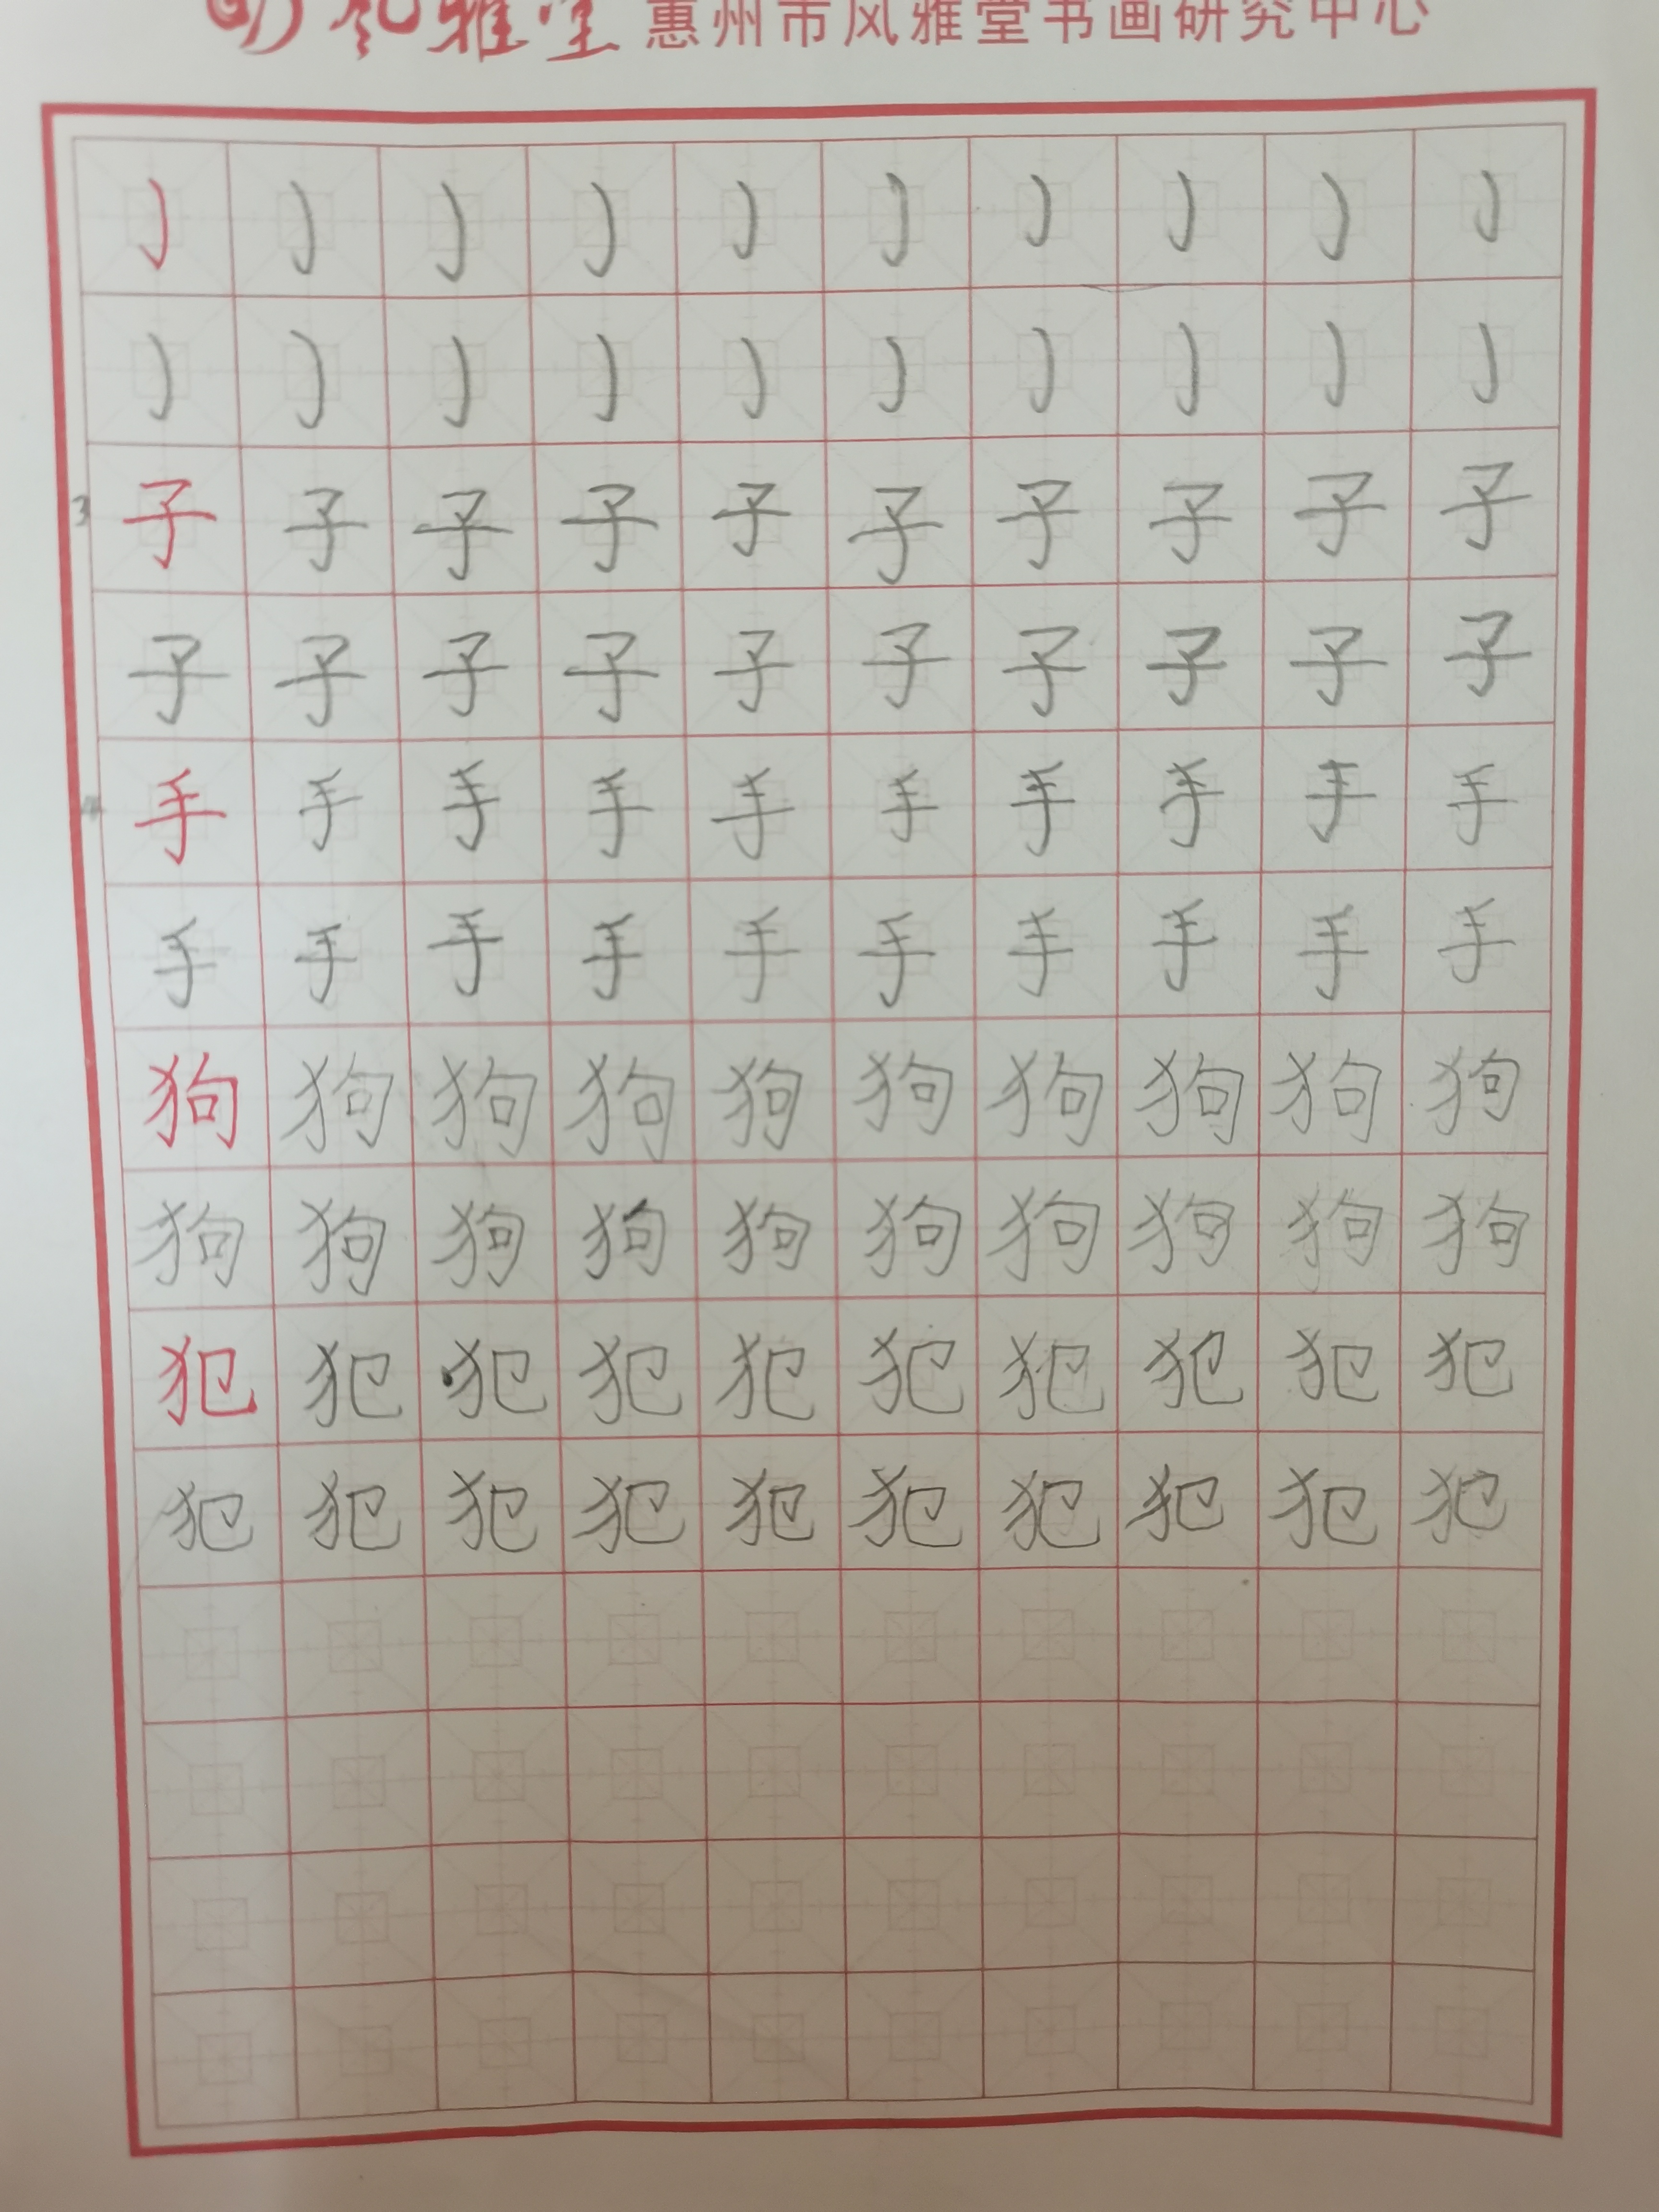 风雅堂 惠州市风雅堂书画研究中心
亅 亅 亅 亅 亅 亅 亅 亅 亅 亅
亅 亅 亅 亅 亅 亅 亅 亅 亅 亅
3 子 子 子 子 子 子 子 子 子 子
子 子 子 子 子 子 子 子 子 子
4 手 手 手 手 手 手 手 手 手 手
手 手 手 手 手 手 手 手 手 手
狗 狗 狗 狗 狗 狗 狗 狗 狗 狗
狗 狗 狗 狗 狗 狗 狗 狗 狗 狗
犯 犯 犯 犯 犯 犯 犯 犯 犯 犯
犯 犯 犯 犯 犯 犯 犯 犯 犯 犯